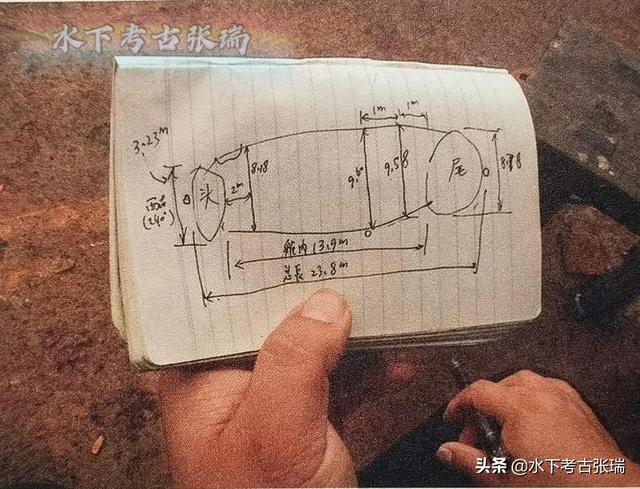 水下考古张瑞
1m
1m
3.23m
头
2m
8.18
9.58
尾
(240°)
舱内 13.9m
总长 23.8m
头条 @水下考古张瑞